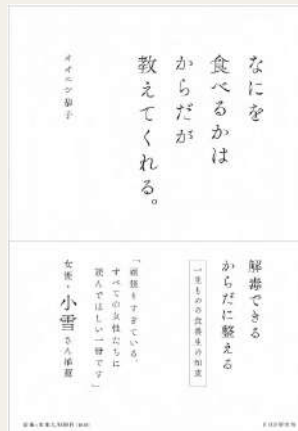 なにを
食べるかは
からだが
教えてくれる。
オオニシ恭子
解毒できる
からだに整える
一生ものの食養生の知恵
「頑張りすぎている、
すべての女性たちに
読んでほしい一冊です」
女優・小雪さん推薦